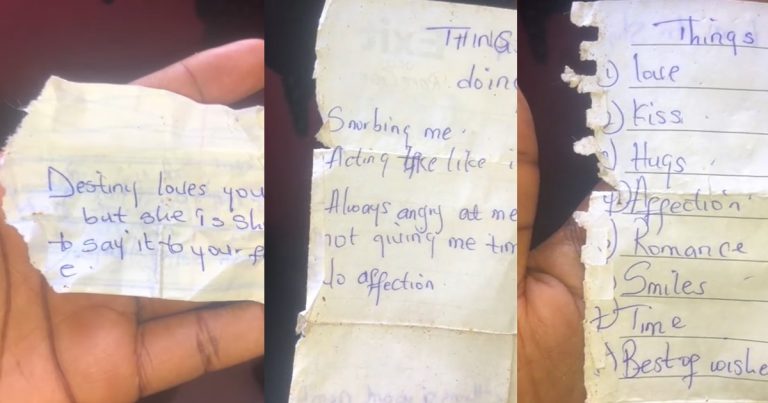 Destiny loves you
but she is sh
to say it to your f
e.
THING
doing
Snorbing me.
Acting like like i
Always angry at me
not giving me tim
No affection
Things
1) love
2) Kiss
3) Hugs
4) Affection
5) Romance
6) Smiles
7) Time
8) Best of wishe